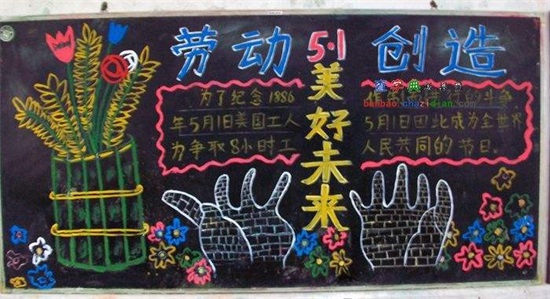 劳动
5·1
创造
美好未来
为了纪念1886
年5月1日美国工人
为争取8小时工
作 的斗争
5月1日因此成为全世界
人民共同的节日。
查字典
banbao.chazidian.com